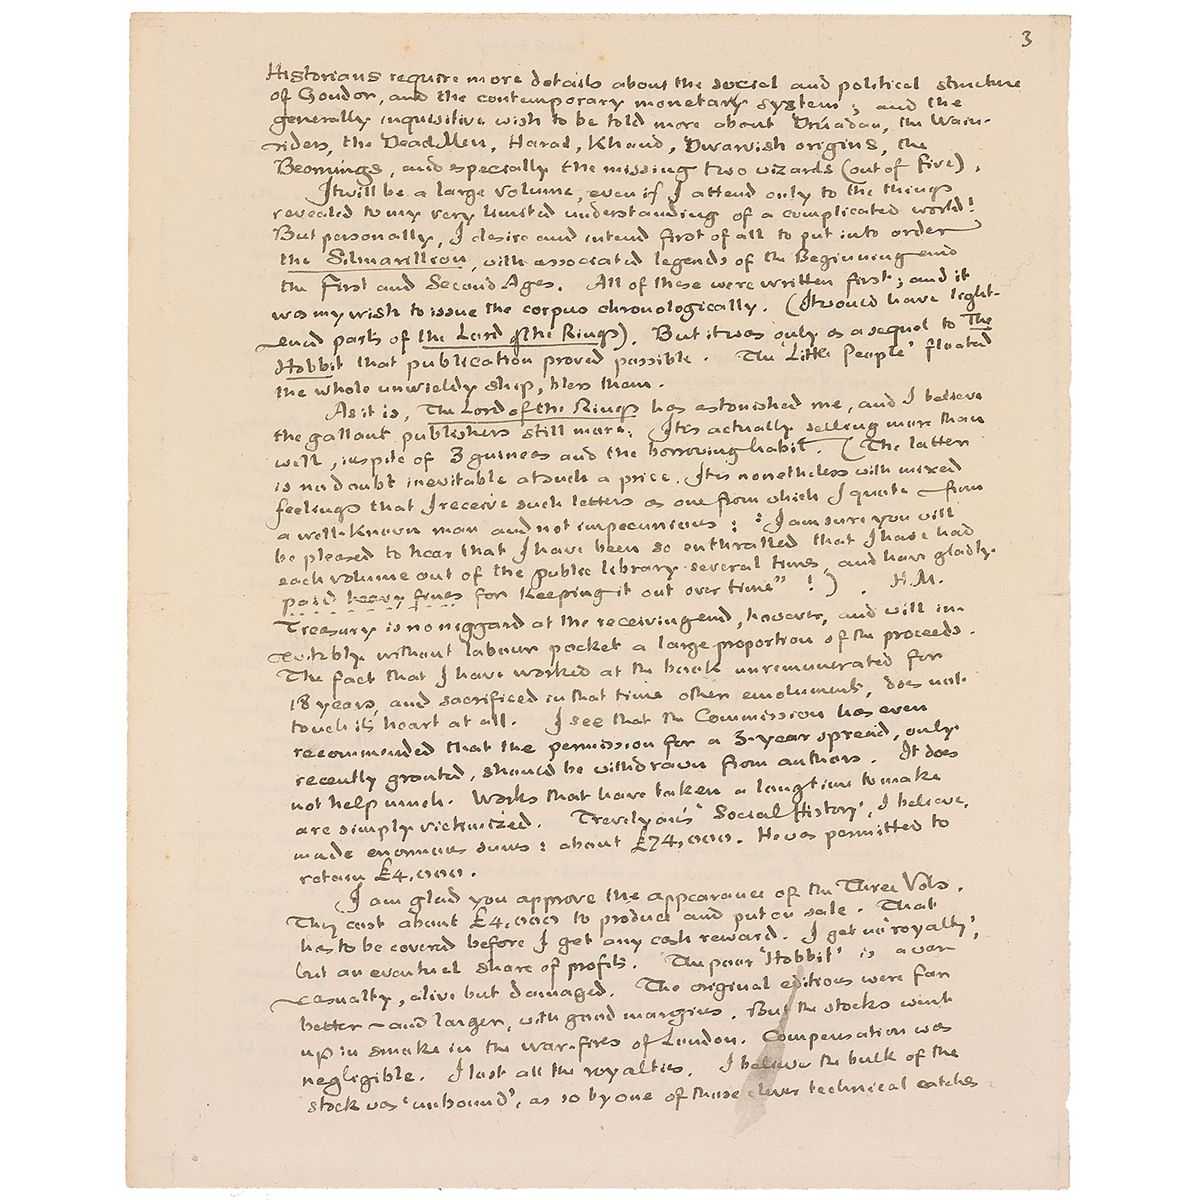 3
Historians require more details about the social and political structure
of Gondor, and the contemporary monetary system; and the
generally inquisitive wish to be told more about Drúadan, the Wain-
riders, the Dead Men, Harad, Khand, Dwarvish origins, the
Beornings, and especially the missing two wizards (out of Five).
It will be a large volume, even if I attend only to the things
revealed to my very limited understanding of a complicated world!
But personally, I desire and intend first of all to put into order
the Silmarillion, with associated legends of the Beginning and
the First and Second Ages. All of these were written first; and it
was my wish to issue the corpus chronologically. (It would have light-
ened parts of the Lord of the Rings). But it was only as a sequel to The
Hobbit that publication proved possible. The 'Little People' floated
the whole unwieldy ship, bless them.
As it is, The Lord of the Rings has astonished me, and I believe
the gallant publishers still more. It is actually selling more than
well, in spite of 3 guineas and the borrowing habit. (The latter
is no doubt inevitable at such a price. It is nonetheless with mixed
feelings that I receive such letters as one from which I quote – from
a well-known man and not impecunious: "I am sure you will
be pleased to hear that I have been so enthralled that I have had
each volume out of the public library several times, and have gladly
paid heavy fines for keeping it out over time"!). H.M.
Treasury is no niggard at the receiving end, however, and will in-
evitably without labour pocket a large proportion of the proceeds.
The fact that I have worked at the book unremunerated for
18 years, and sacrificed in that time other emoluments, does not
touch its heart at all. I see that the Commission has even
recommended that the permission for a 3-year spread, only
recently granted, should be withdrawn from authors. It does
not help much. Works that have taken a long time to make
are simply victimized. Trevelyan's 'Social History', I believe,
made enormous sums: about £74,000. He was permitted to
retain £4,000.
I am glad you approve the appearance of the Three Vols.
They cost about £4,000 to produce and put on sale. That
has to be covered before I get any cash reward. I get no 'royalty',
but an eventual share of profits. The poor 'Hobbit' is a war
casualty, alive but damaged. The original editions were far
better – and larger, with good margins. But the stocks went
up in smoke in the war-fires of London. Compensation was
negligible. I lost all the royalties. I believe the bulk of the
stock was 'unbound', as so by one of those clever technical catches